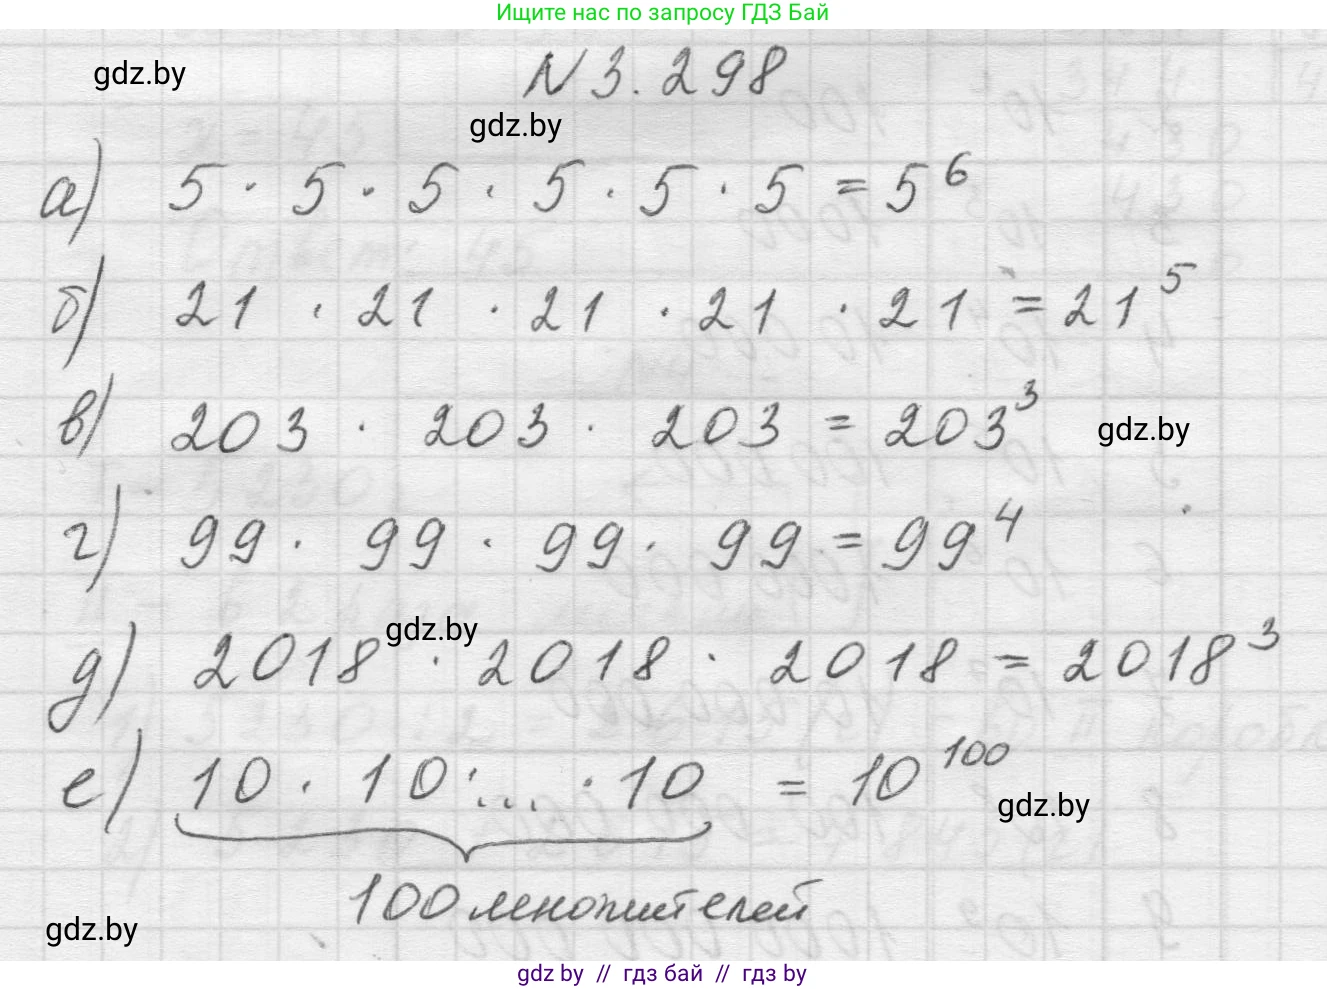 Ищите нас по запросу ГДЗ Бай
gdz.by
N 3.298
gdz.by
а) 5 · 5 · 5 · 5 · 5 · 5 = 5⁶
б) 21 · 21 · 21 · 21 · 21 = 21⁵
в) 203 · 203 · 203 = 203³
gdz.by
г) 99 · 99 · 99 · 99 = 99⁴
gdz.by
д) 2018 · 2018 · 2018 = 2018³
е) 10 · 10 · ... · 10 = 10¹⁰⁰
gdz.by
100 множителей
gdz.by
gdz by // гдз бай // гдз by